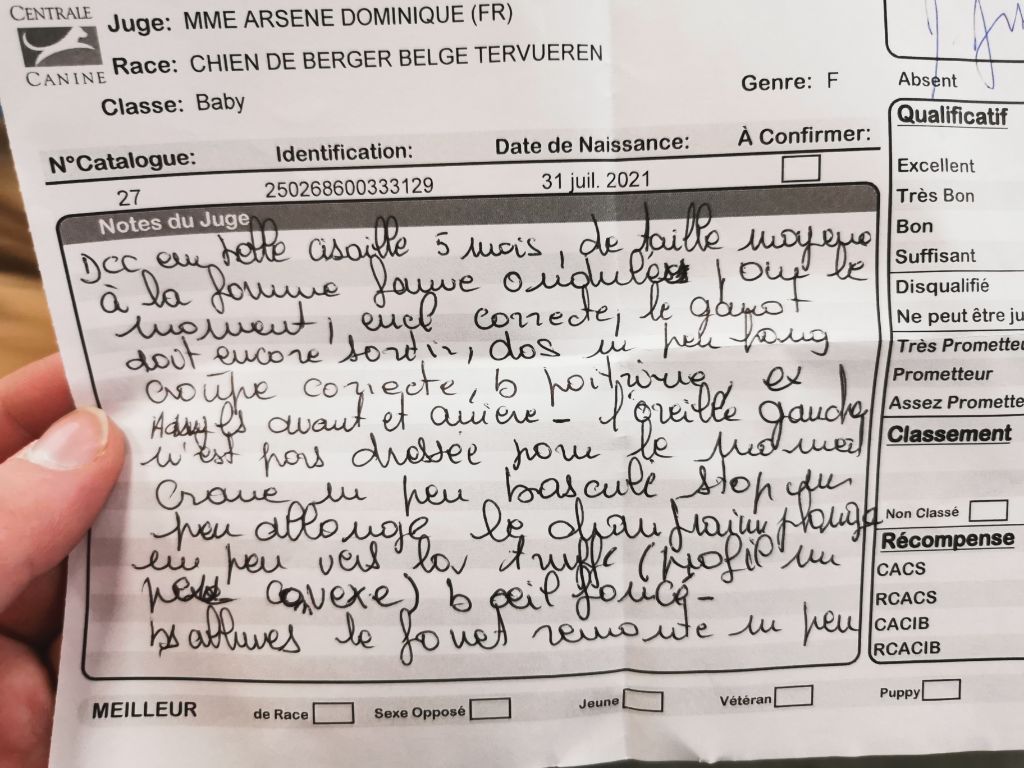 CENTRALE
CANINE
Juge: MME ARSENE DOMINIQUE (FR)
Race: CHIEN DE BERGER BELGE TERVUEREN
Classe: Baby
Genre: F
N°Catalogue: Identification: Date de Naissance: À Confirmer:
27 250268600333129 31 juil. 2021
Notes du Juge
Dcc en belle cisaille 5 mois, de taille moyenne
à la femme fauve pour le
moment, encl correcte, le garrot
doit encore sortir, dos un peu long
croupe correcte, b poitrine, ex
avant et arrière - l'oreille gauche
n'est pas dressée pour le moment
Crane un peu basculé stop un
peu allongé le chanfrein plonge
un peu vers la truffe (profil un
peu convexe) b œil foncé -
bs allures le fouet remonte un peu
MEILLEUR de Race Sexe Opposé Jeune Vétéran Puppy
Absent
Qualificatif
Excellent
Très Bon
Bon
Suffisant
Disqualifié
Ne peut être ju
Très Prometteu
Prometteur
Assez Promette
Classement
Non Classé
Récompense
CACS
RCACS
CACIB
RCACIB